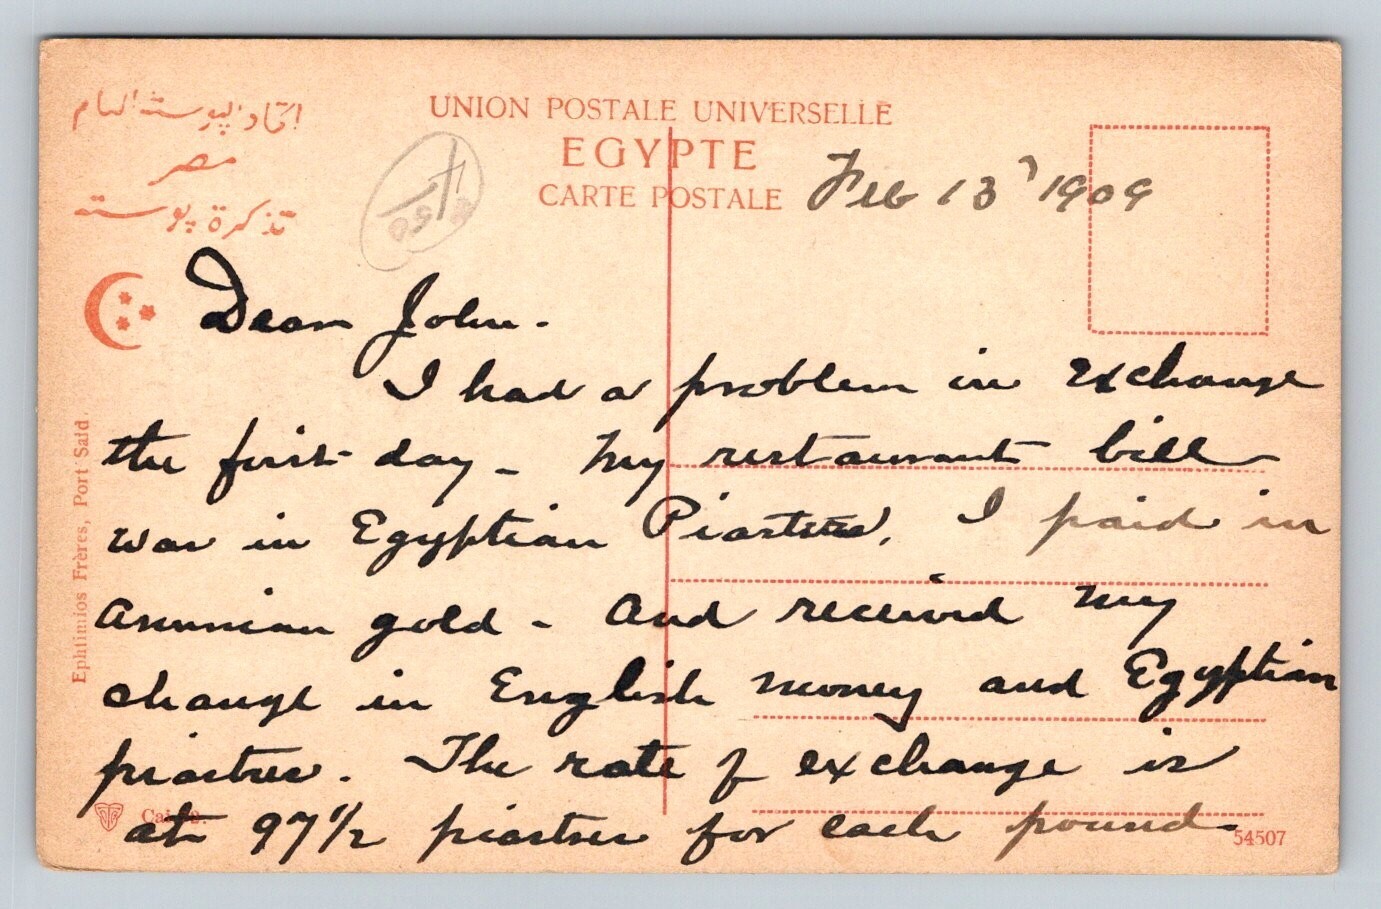 اتحاد البوستة العام
مصر
تذكرة بوستة
UNION POSTALE UNIVERSELLE
EGYPTE
CARTE POSTALE
Feb 13' 1909
Dear John.
I had a problem in exchange
the first day - My restaurant bill
was in Egyptian Piastres. I paid in
American gold - And received my
change in English money and Egyptian
piastres. The rate of exchange is
at 97 1/2 piastres for each pound
Ephtimios Frères, Port Said.
54507